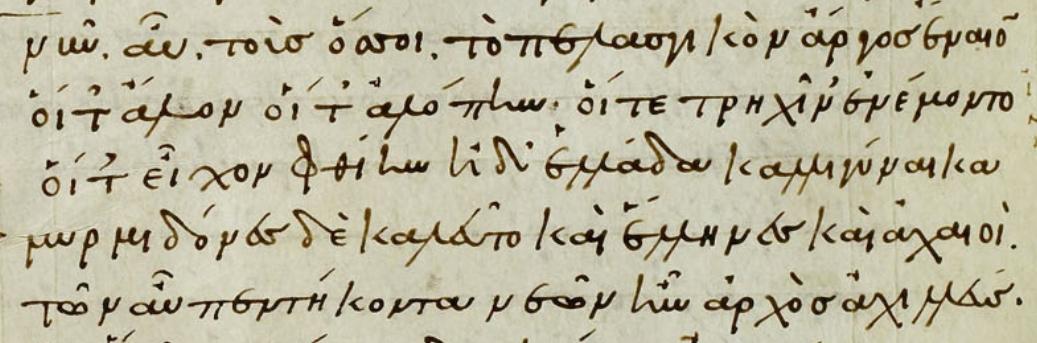 νῦν. αὖ. τοὺσ ὅσσοι. τὸ πελασγικὸν ἄργοσ ἔναιον
οἵ τ' ἄλον οἵ τ' ἀλόπην. οἵ τε τρηχῖν' ἐνέμοντο
οἵ τ' εἶχον φθίην ἠδ' ἑλλάδα καλλιγύναικα
μυρμιδόνεσ δὲ καλεῦντο καὶ ἕλληνεσ καὶ ἀχαιοί.
τῶν αὖ πεντήκοντα νεῶν ἦν ἀρχὸσ ἀχιλλεύσ.